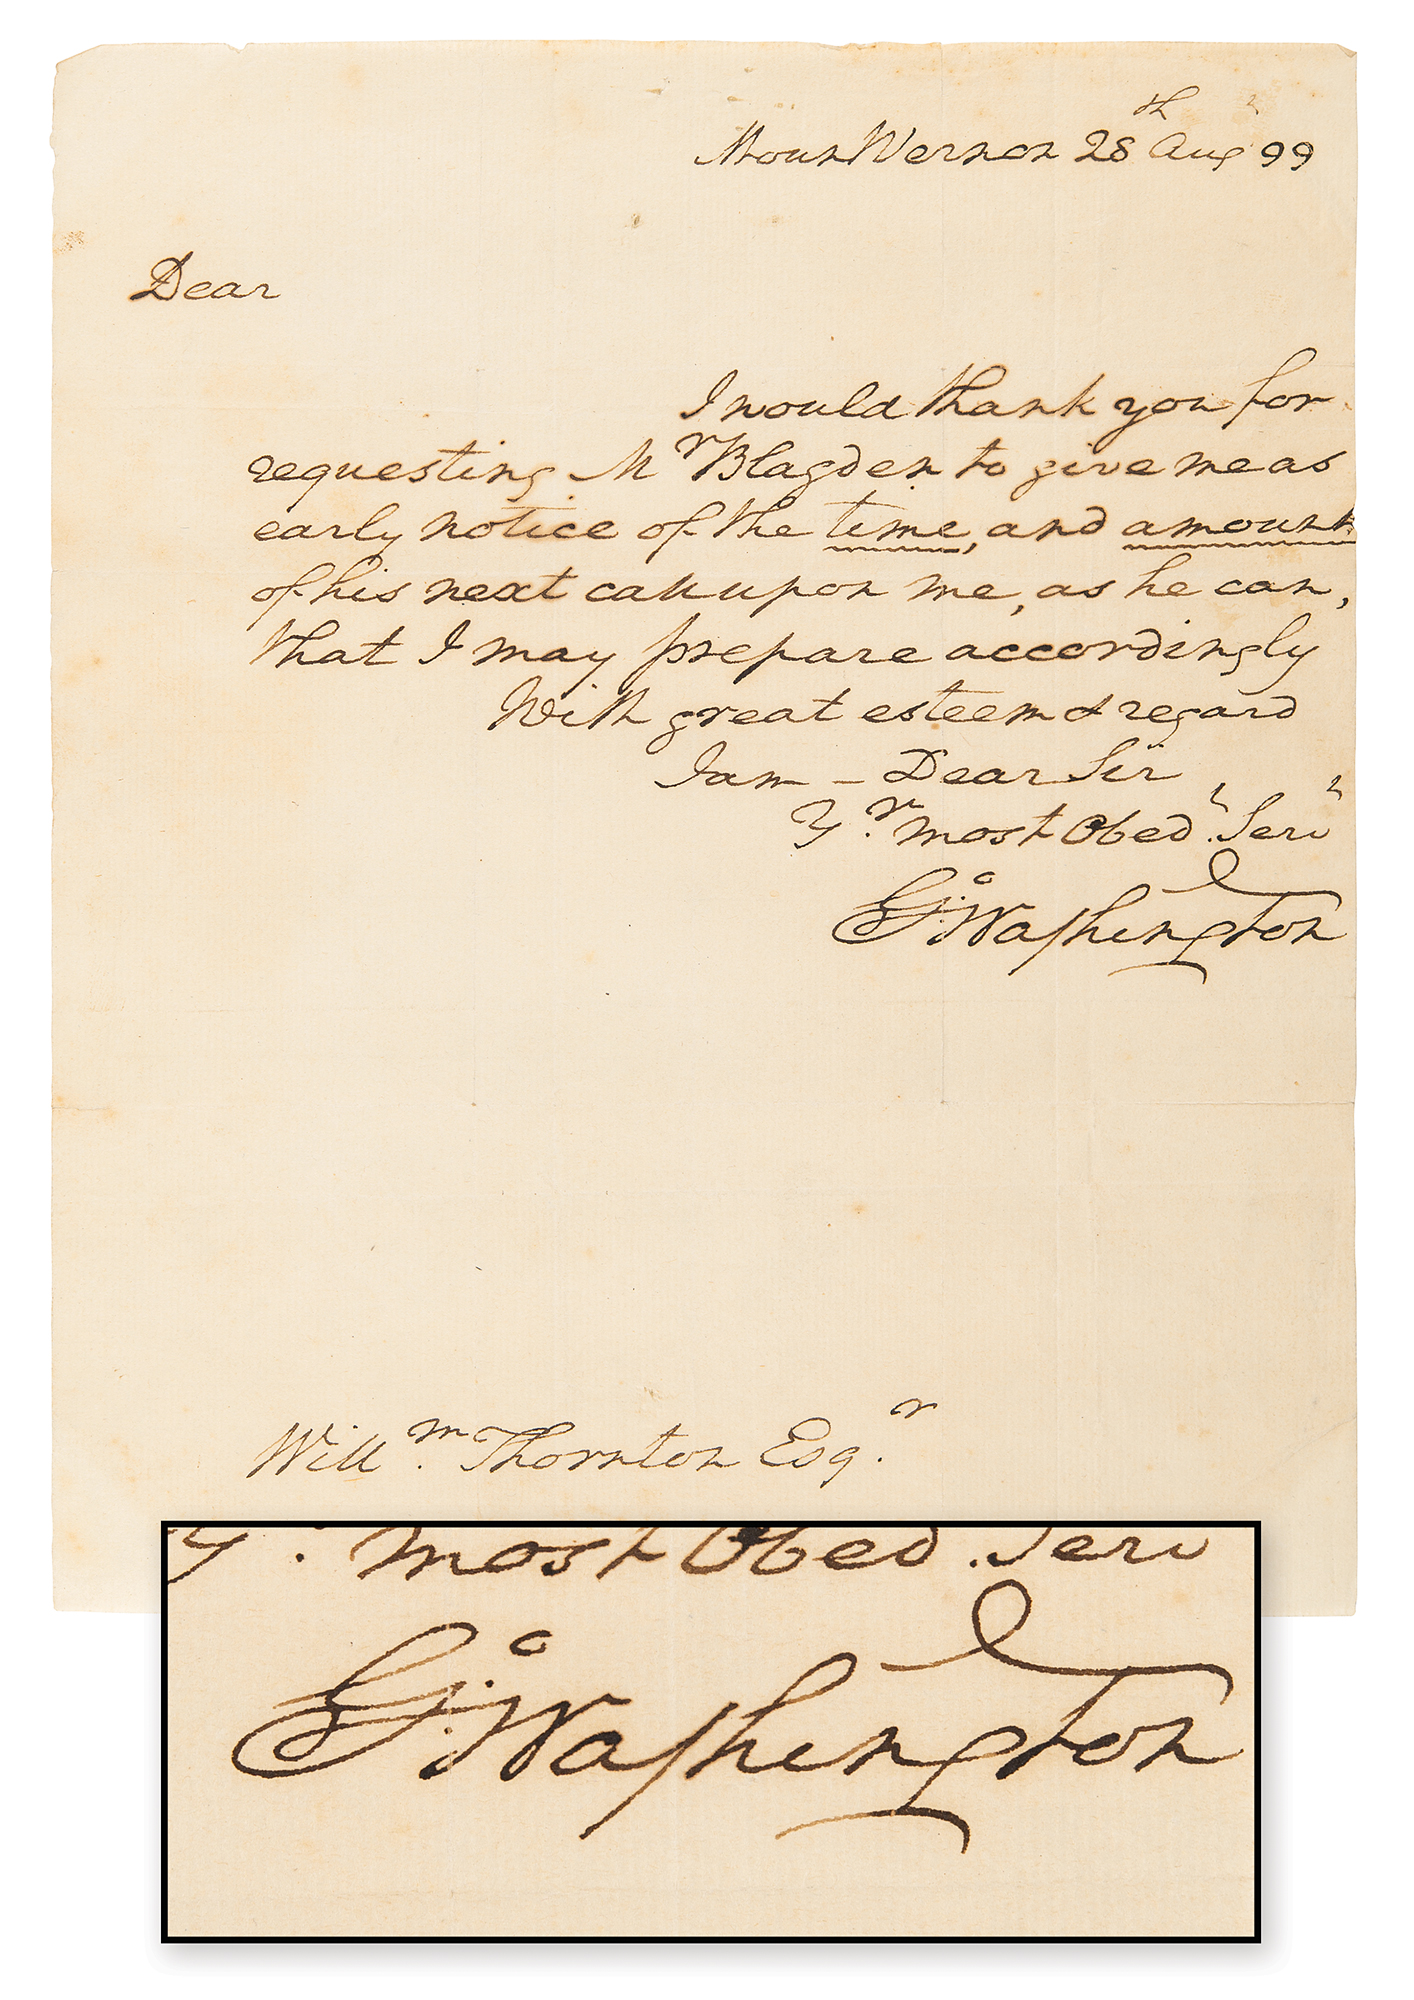 Mount Vernon 28th Augt 99
Dear
I would thank you for
requesting Mr Blagden to give me as
early notice of the time, and amount
of his next call upon me, as he can,
that I may prepare accordingly
With great esteem & regard
I am – Dear Sir
Yr. most Obedt. Servt
Go: Washington
Willm. Thornton Esqr.
Y. most Obed. Serv
Go: Washington